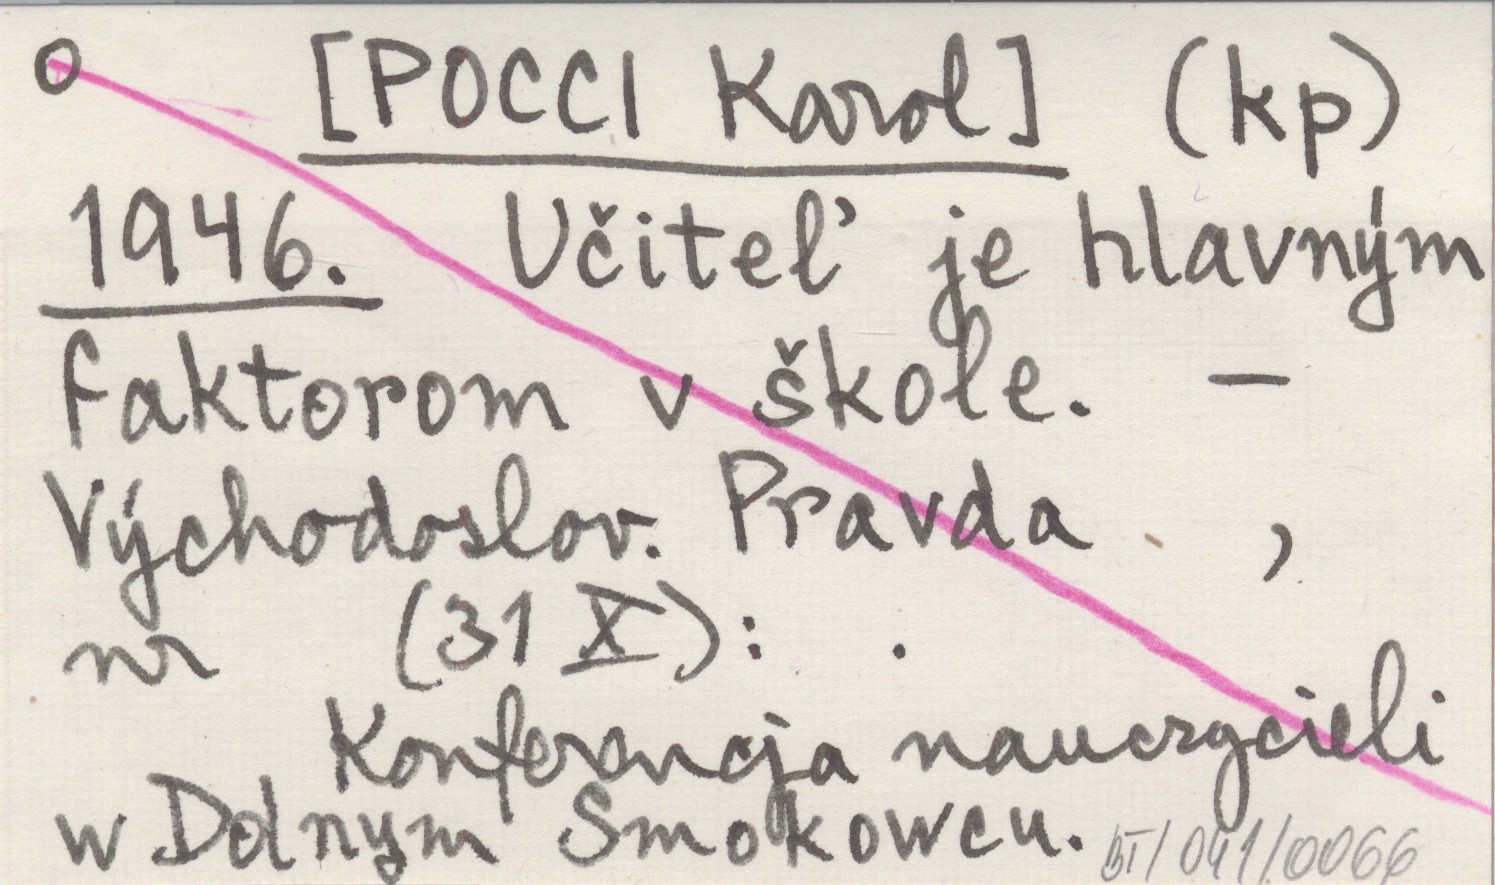 o [POCCI Karol] (kp)
1946. Učiteľ je hlavným
faktorom v škole. –
Východoslov. Pravda ,
nr (31 X): .
Konferencja nauczycieli
w Dolnym Smokowcu. BT/041/0066